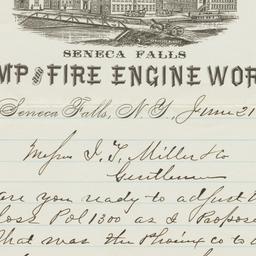 SENECA FALLS
MP AND FIRE ENGINE WOR
Seneca Falls, N.Y. June 21
Messrs I. T. Miller & Co
Gentlemen
are you ready to adjust
loss Pol 1300 as I Propose
What was the Phoenix co to